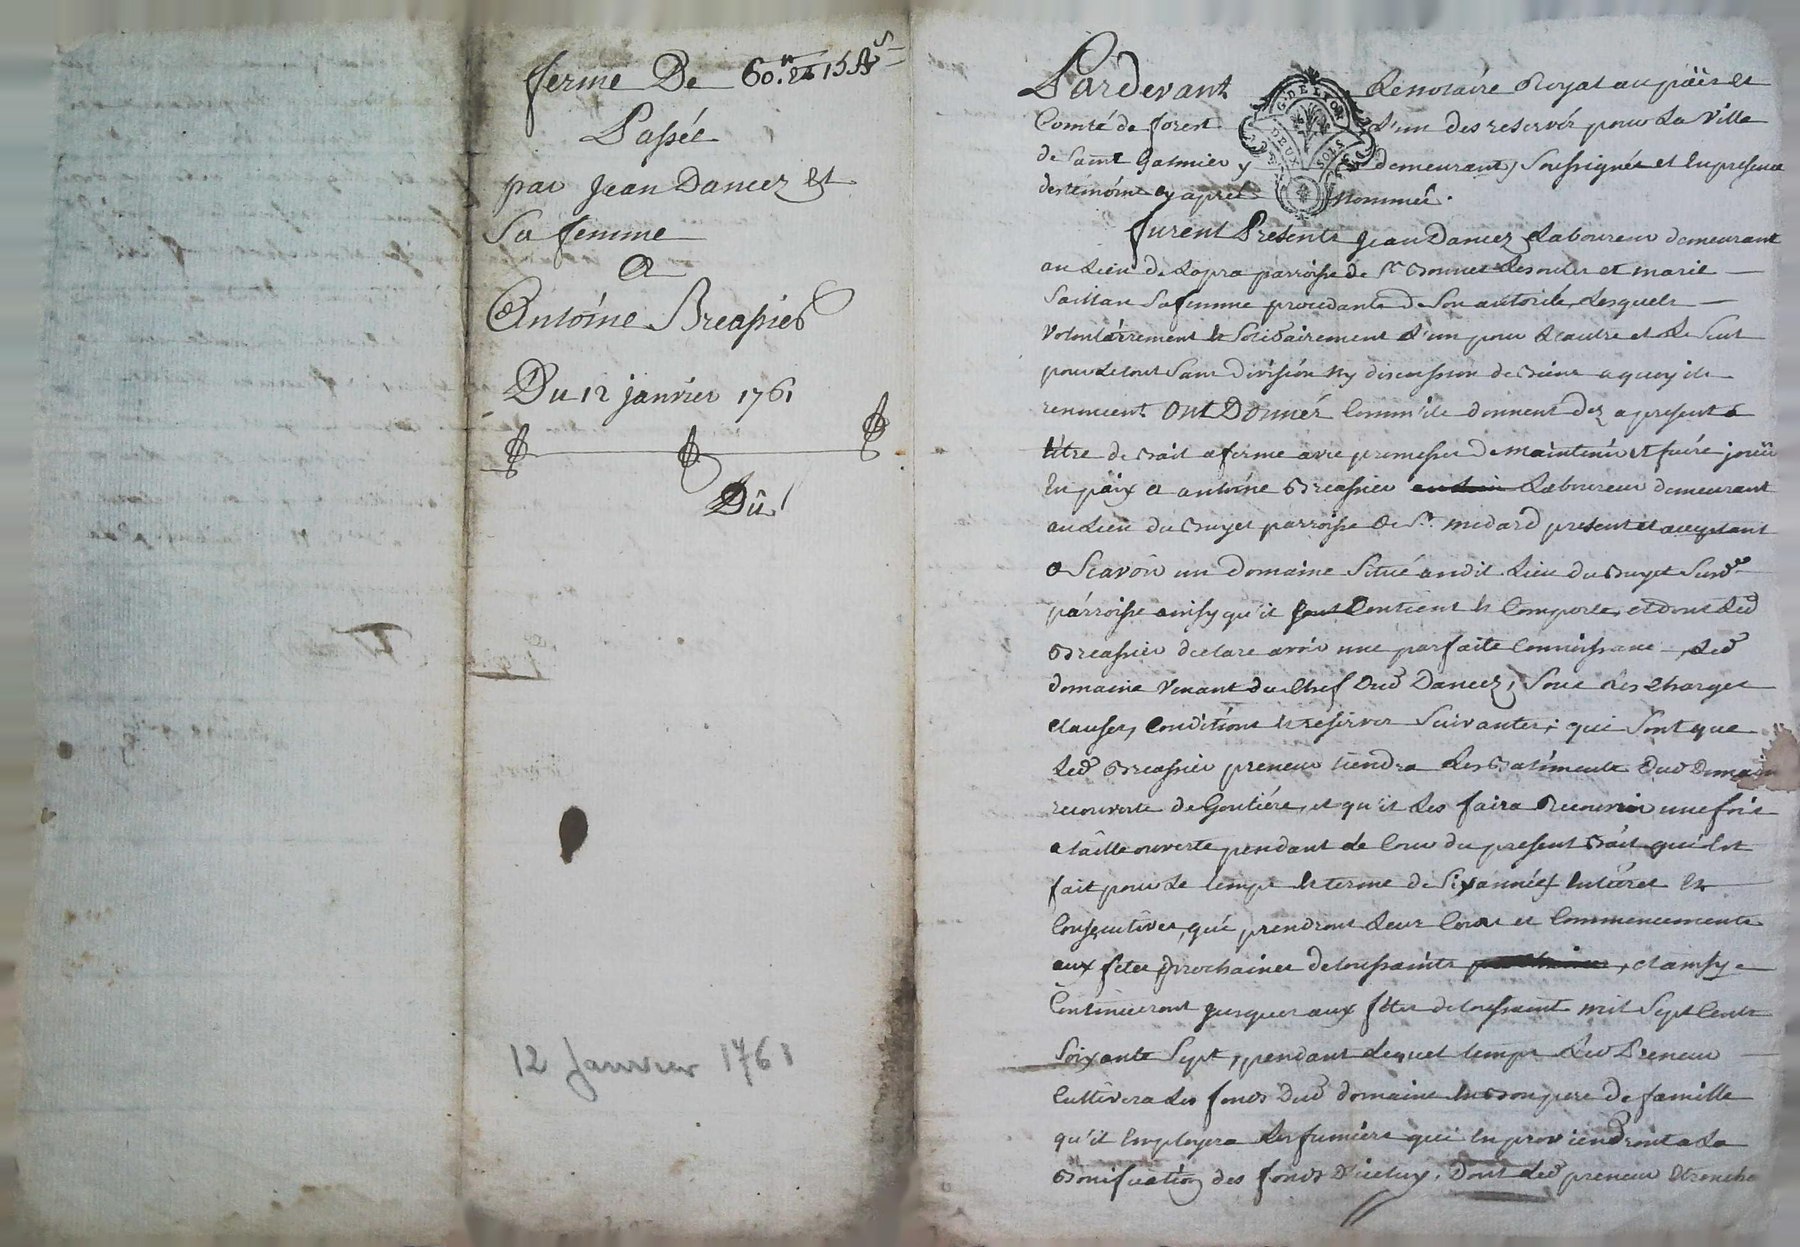 ferme De 60.ᵗᵗ 15 s
Passée
par Jean Dancez Et
Sa femme
A
Antoine Breassier
Du 12 janvier 1761
Dû
12 Janvier 1761
Pardevant Le notaire Royal au päis et
Comté de forest L'un des reservés pour La Ville
de Saint Galmier y demeurant, Soussignée et En presence
des temoins cy après Nommés.
G DE LYON
DEUX SOLS
furent Presents Jean Dancez Laboureur demeurant
au Lieu de Lapra parroisse de St Bonnet Les oules et marie
Saillan Sa femme procedante de Son autorité, Lesquels
Volontairement et Solidairement L'un pour L'autre et Le Seul
pour Le tout Sans division ny discussion de Biens a quoy ils
renoncent Ont Donnés Comm'ils donnent dez a present a
titre de Bail a ferme avec promesse de maintenir et faire joüir
En päix a antoine Breassier Laboureur demeurant
au Lieu du Buyet parroisse de St. medard present et acceptant
a Scavoir un domaine Situé audit Lieu du Buyet Susde
parroisse ainsy qu'il Contient et Comporte, et dont Led
Breassier declare avoir une parfaite Connoissance Led
domaine Venant du Chef Dud Dancez, Sous Les Charges
clauses, Conditions et reserves Suivantes; qui Sont que
Led Breassier preneur tiendra Les Batiments Dud Domaine
recouverts de Goutiére, et qu'il Les faira Recouvrir une fois
a taille ouverte pendant Le Cour du present Bail qui Est
fait pour Le temps et terme de Six années Entieres et
Consecutives, qui prendront Leur Cours et Commencements
aux fetes prochaines de toussaints, et ainsy
Continüeront Jusques aux fêtes de toussaint mil Sept Cents
Soixante Sept, pendant Lequel temps Led Preneur
Cultivera Les fonds Dud domaine En Bon pere de famille
qu'il Employera Les fumiers qui En proviendront a La
Bonification des fonds D'iceluy, Dont Led preneur